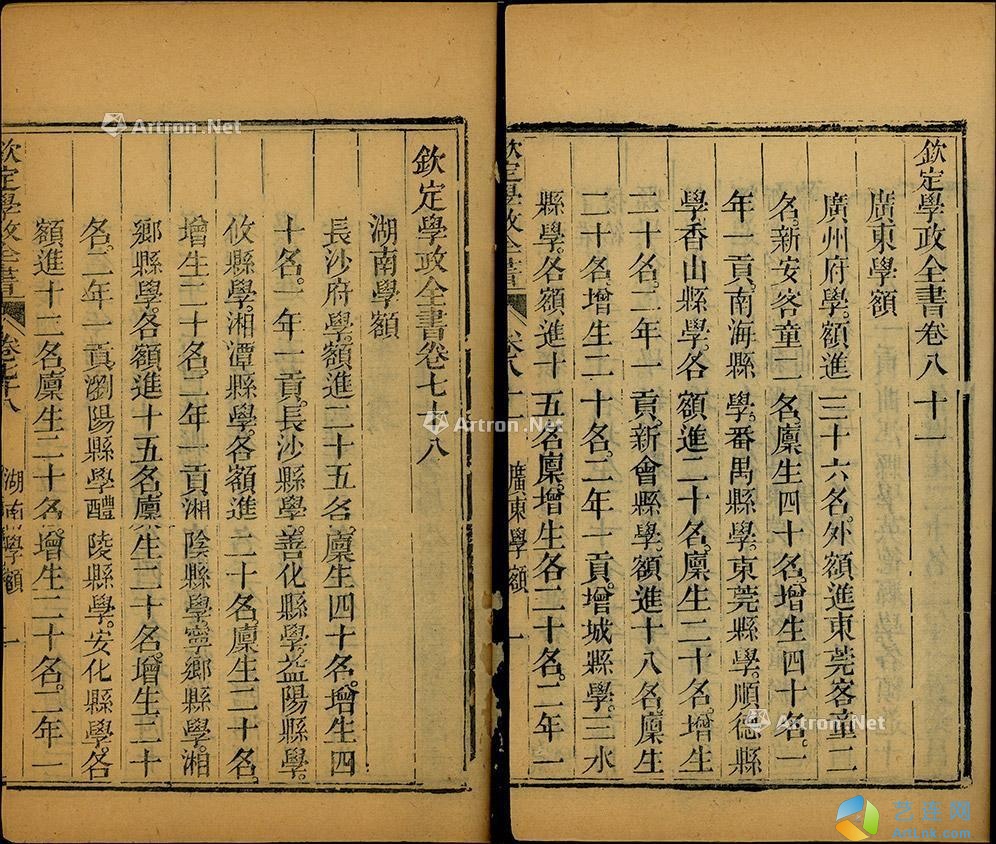 欽定學政全書卷八十一
廣東學額
廣州府學。額進三十六名。外額進東莞客童二
名。新安客童二名。廩生四十名。增生四十名。一
年一貢。南海縣學。番禺縣學。東莞縣學。順德縣
學。香山縣學。各額進二十名。廩生二十名。增生
二十名。二年一貢。新會縣學。額進十八名。廩生
二十名。增生二十名。二年一貢。增城縣學。三水
縣學。各額進十五名。廩增生各二十名。二年一
欽定學政全書 卷八十一 廣東學額 一
欽定學政全書卷七十八
湖南學額
長沙府學。額進二十五名。廩生四十名。增生四
十名。一年一貢。長沙縣學。善化縣學。益陽縣學。
攸縣學。湘潭縣學。各額進二十名。廩生二十名。
增生二十名。二年一貢。湘陰縣學。寧鄉縣學。湘
鄉縣學。各額進十五名。廩生二十名。增生二十
名。二年一貢。瀏陽縣學。醴陵縣學。安化縣學。各
額進十二名。廩生二十名。增生二十名。二年一
欽定學政全書 卷七十八 湖南學額 一
Artron.Net
Artron.Net
Artron.Net
艺连网
artlnk.com